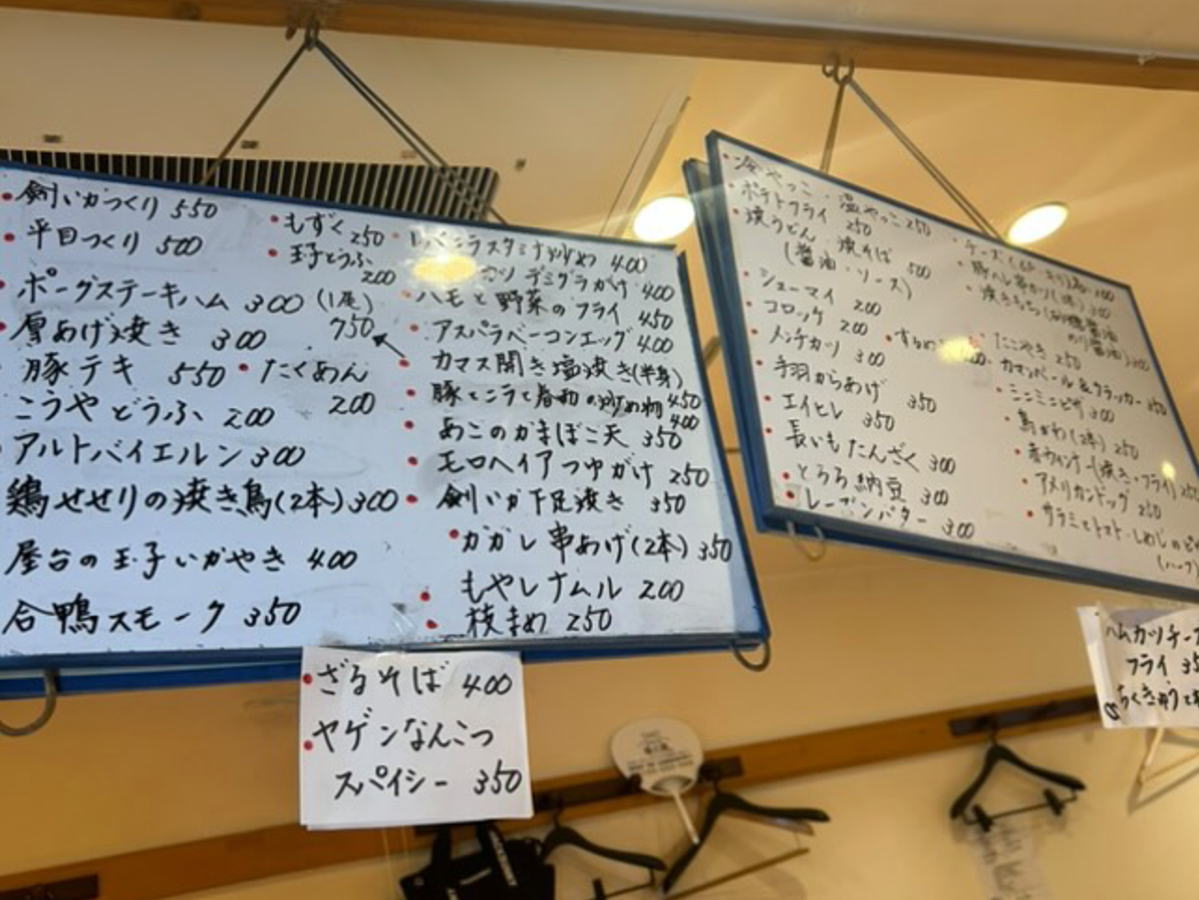 剣いかつくり 550
平目つくり 500
ポークステーキハム 300 (1尾)
750
厚あげ焼き 300
豚テキ 550
たくあん
200
こうやどうふ 200
アルトバイエルン 300
鶏せせりの焼き鳥(2本) 300
屋台の玉子いかやき 400
合鴨スモーク 350
もずく 250
玉子とうふ
200
スタミナ炒め 400
カツ デミグラがけ 400
ハモと野菜のフライ 450
アスパラベーコンエッグ 400
カマス開き塩焼き(半身)
450
豚とニラと春雨の炒め物
400
あごのかまぼこ天 350
モロヘイアつゆがけ 250
剣いか下足焼き 350
串あげ(2本) 350
もやしナムル 200
枝まめ 250
ざるそば 400
ヤゲンなんこつ
スパイシー 350
冷やっこ・温やっこ 250
ポテトフライ 250
焼うどん・焼そば 500
(醤油・ソース)
シューマイ 200
コロッケ 200
メンチカツ 300
手羽からあげ 350
エイヒレ 350
長いもたんざく 300
とろろ納豆 300
レーズンバター 300
たこやき 250
カマンベール&クラッカー 350
ミニピザ 300
鳥かわ(2本) 250
赤ウィンナー(焼き・フライ)
アメリカンドッグ 250
サラミとトマト・しめじの
(ハーフ)
ハムカツチーズ
フライ 35
ちくきゅう